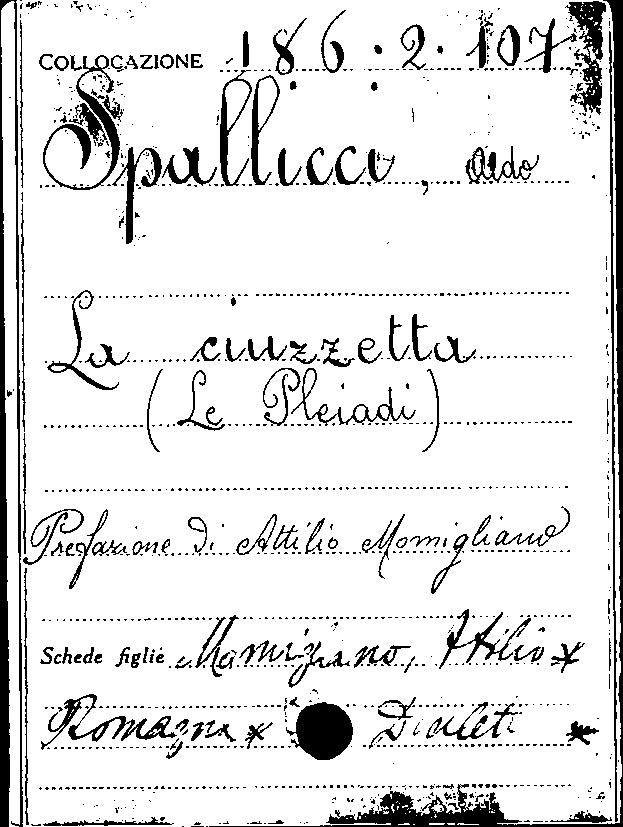 COLLOCAZIONE 186.2.107
Spallicci, Aldo
La ciuzzetta
(Le Pleiadi)
Prefazione di Attilio Momigliano
Schede figlie Momigliano, Attilio *
Romagna * Dialetti *